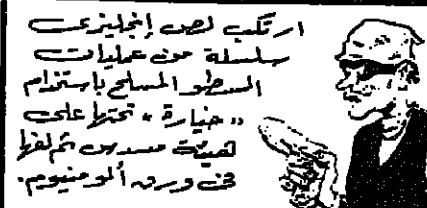 ارتكب لص إنجليزى
سلسلة من عمليات
السطو المسلح باستخدام
« خيارة » نحتها على
هيئة مسدس ثم لفها
فى ورق ألومنيوم.